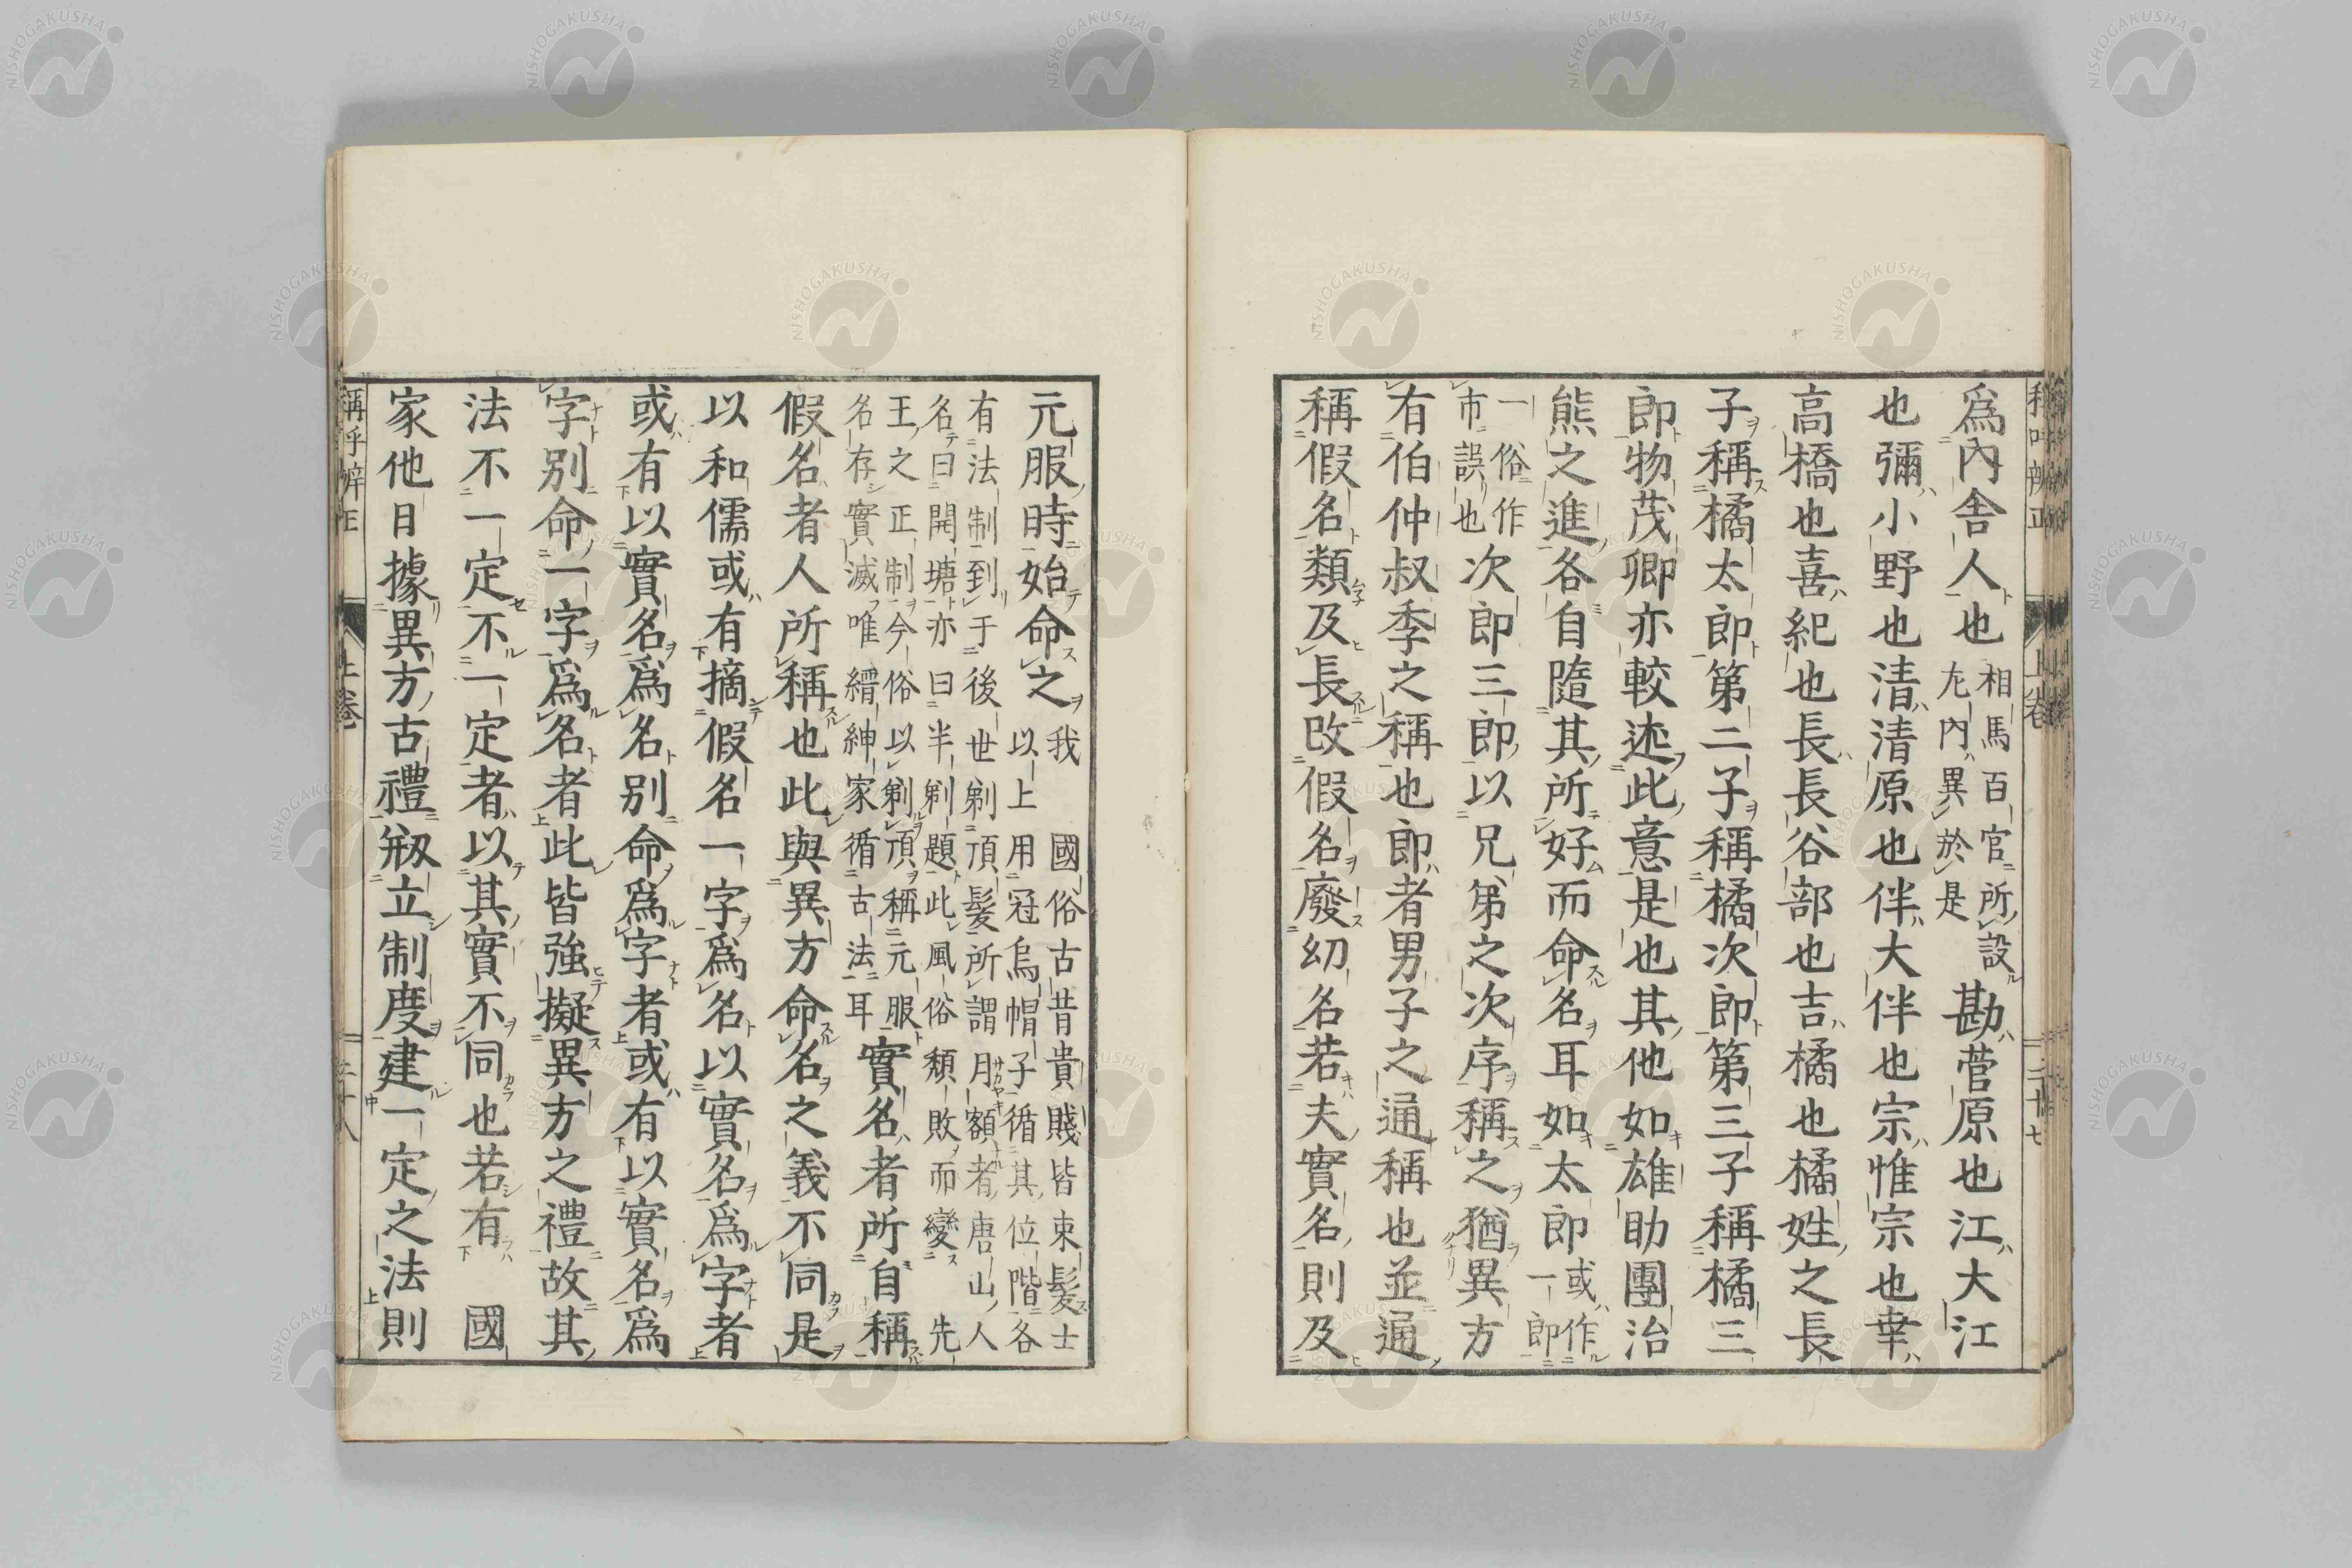 爲內舎人也相馬百官所設
尢內異於是勘菅原也江大江
也彌小野也清清原也伴大伴也宗惟宗也幸
高橋也喜紀也長長谷部也吉橘也橘姓之長
子稱橘太郎第二子稱橘次郎第三子稱橘三
郎物茂卿亦較述此意是也其他如雄助團治
熊之進各自隨其所好而命名耳如太郎或作
一郎
一俗作
市誤也次郎三郎以兄弟之次序稱之猶異方
有伯仲叔季之稱也郎者男子之通稱也並通
稱假名類及長改假名廢幼名若夫實名則及
稱呼辨正 上卷 二十七
元服時始命之我 國俗古昔貴賤皆束髮士
以上用冠烏帽子循其位階各
有法制到于後世剃頂髮所謂月額者唐山人
名曰開塘亦曰半剃題此風俗頽敗而變 先
王之正制今俗以剃頂稱元服
名存實滅唯縉紳家循古法耳實名者所自稱
假名者人所稱也此與異方命名之義不同是
以和儒或有摘假名一字爲名以實名爲字者
或有以實名爲名別命爲字者或有以實名爲
字別命一字爲名者此皆強擬異方之禮故其
法不一定不一定者以其實不同也若有 國
家他日據異方古禮剏立制度建一定之法則
稱呼辨正 上卷 二十八
NISHOGAKUSHA